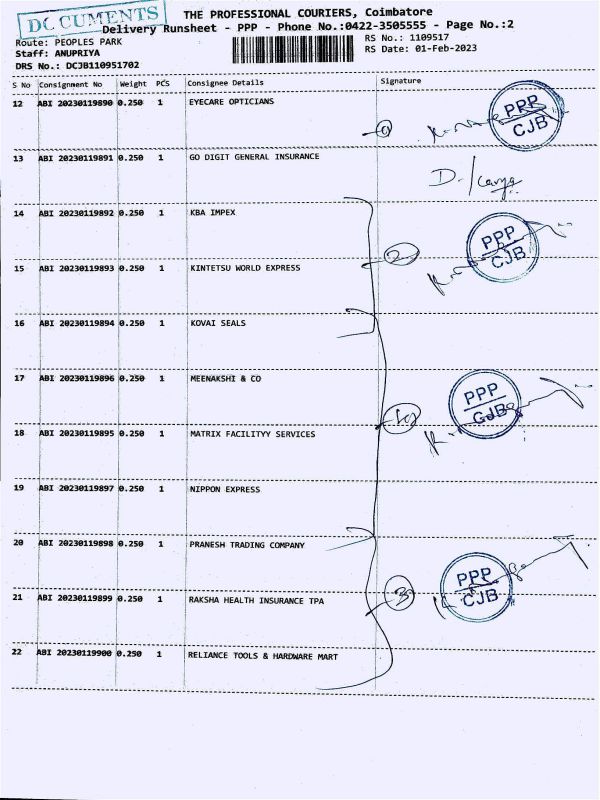 DC CUMENTS
THE PROFESSIONAL COURIERS, Coimbatore
Delivery Runsheet - PPP - Phone No.:0422-3505555 - Page No.:2
Route: PEOPLES PARK
RS No.: 1109517
Staff: ANUPRIYA
RS Date: 01-Feb-2023
DRS No.: DCJB110951702
S No Consignment No Weight PCS Consignee Details Signature
12 ABI 20230119890 0.250 1 EYECARE OPTICIANS
PPP
CJB
13 ABI 20230119891 0.250 1 GO DIGIT GENERAL INSURANCE
14 ABI 20230119892 0.250 1 KBA IMPEX
2
PPP
CJB
15 ABI 20230119893 0.250 1 KINTETSU WORLD EXPRESS
16 ABI 20230119894 0.250 1 KOVAI SEALS
17 ABI 20230119896 0.250 1 MEENAKSHI & CO
PPP
CJB
18 ABI 20230119895 0.250 1 MATRIX FACILITYY SERVICES
19 ABI 20230119897 0.250 1 NIPPON EXPRESS
20 ABI 20230119898 0.250 1 PRANESH TRADING COMPANY
PPP
CJB
21 ABI 20230119899 0.250 1 RAKSHA HEALTH INSURANCE TPA
3
22 ABI 20230119900 0.250 1 RELIANCE TOOLS & HARDWARE MART